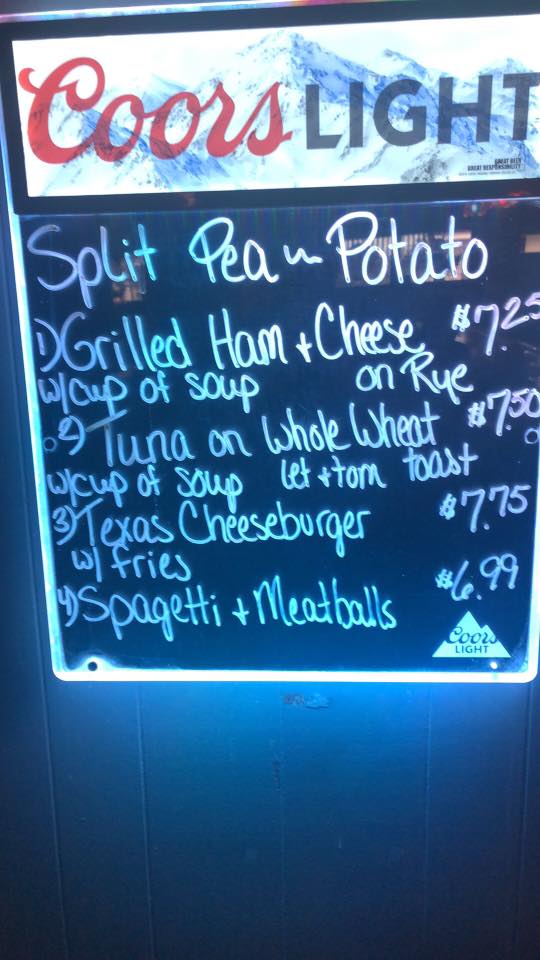 Coors LIGHT
GREAT BEER
GREAT RESPONSIBILITY
Split Pea ~ Potato
1) Grilled Ham + Cheese $7.25
w/cup of soup on Rye
2) Tuna on Whole Wheat $7.50
w/cup of soup let + tom toast
3) Texas Cheeseburger $7.75
w/ fries
4) Spagetti + Meatballs $6.99
Coors
LIGHT